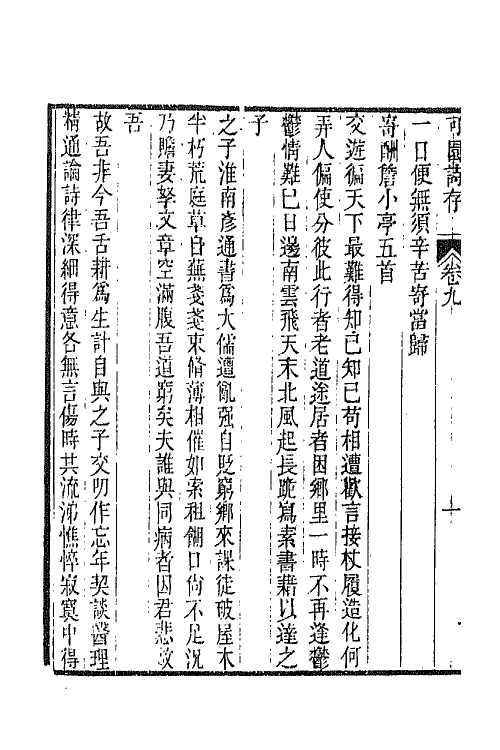 可園詩存　卷九　十
一日便無須辛苦寄當歸
寄酬詹小亭五首
交遊徧天下最難得知己知已苟相遭歡言接杖履造化何
弄人偏使分彼此行者老道途居者困鄉里一時不再逢鬱
鬱情難已日邊南雲飛天末北風起長跪寫素書藉以達之
子
之子淮南彥通書爲大儒遭亂强自貶窮鄉來課徒破屋木
半朽荒庭草自蕪戔戔束脩薄相催如索租餬口尙不足況
乃贍妻孥文章空滿腹吾道窮矣夫誰與同病者因君悲故
吾
故吾非今吾舌耕爲生計自與之子交叨作忘年契談醫理
精通論詩律深細得意各無言傷時共流涕憔悴寂寞中得